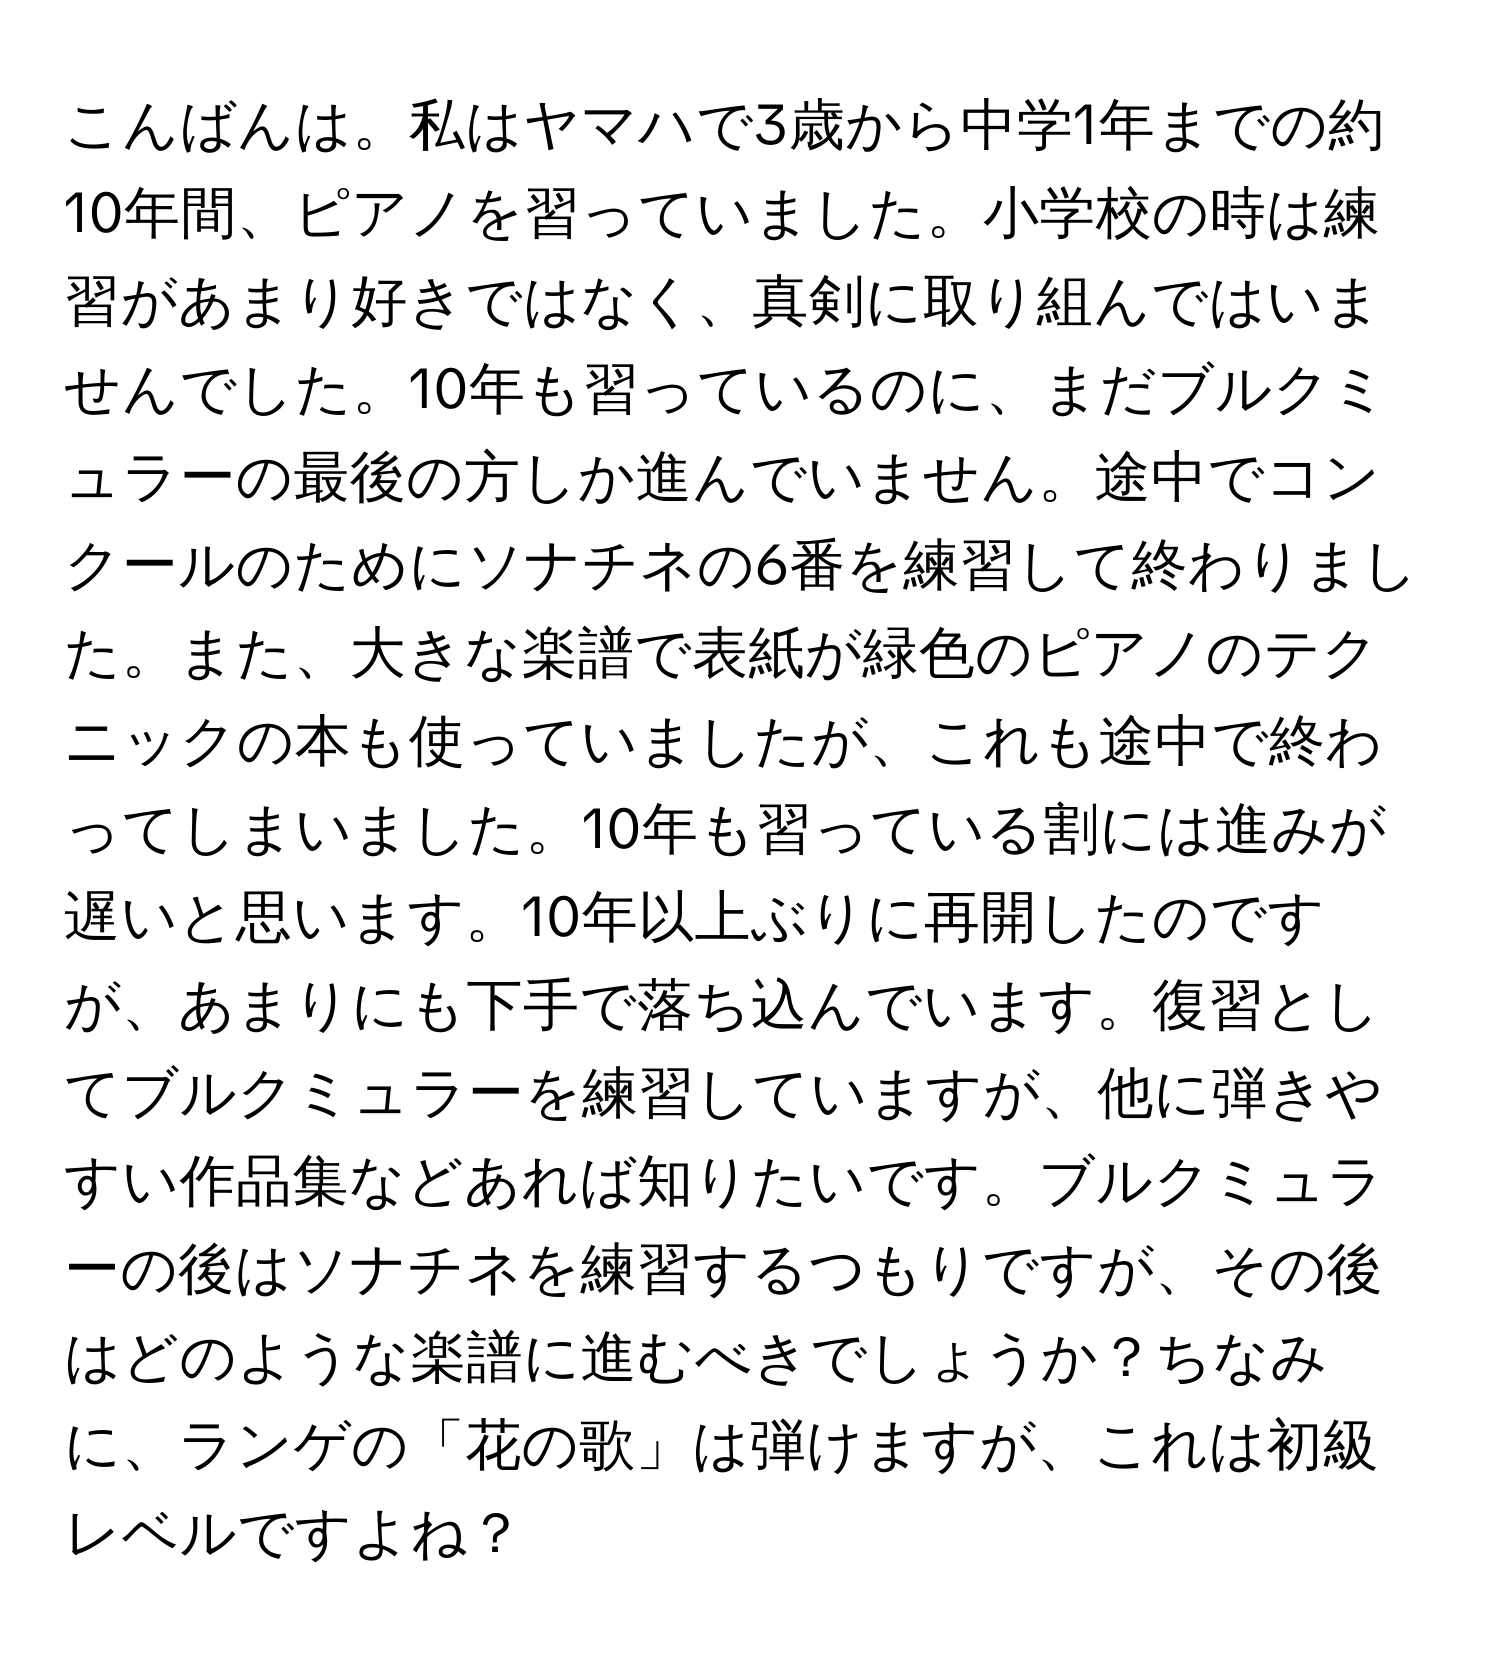 こんばんは。私はヤマハで3歳から中学1年までの約
10年間、ピアノを習っていました。小学校の時は練
習があまり好きではなく、真剣に取り組んではいま
せんでした。10年も習っているのに、まだブルクミ
ュラーの最後の方しか進んでいません。途中でコン
クールのためにソナチネの6番を練習して終わりまし
た。また、大きな楽譜で表紙が緑色のピアノのテク
ニックの本も使っていましたが、これも途中で終わ
ってしまいました。10年も習っている割には進みが
遅いと思います。10年以上ぶりに再開したのです
が、あまりにも下手で落ち込んでいます。復習とし
てブルクミュラーを練習していますが、他に弾きや
すい作品集などあれば知りたいです。ブルクミュラ
ーの後はソナチネを練習するつもりですが、その後
はどのような楽譜に進むべきでしょうか？ちなみ
に、ランゲの「花の歌」は弾けますが、これは初級
レベルですよね？